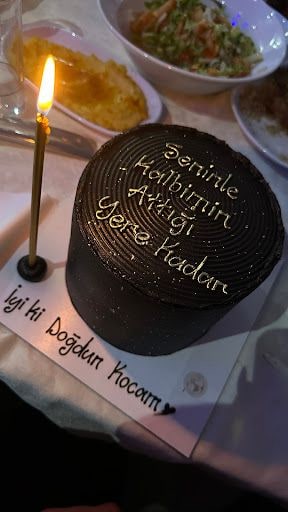 Seninle
Kalbimin
Attığı
Yere Kadar
İyi ki Doğdun Kocam